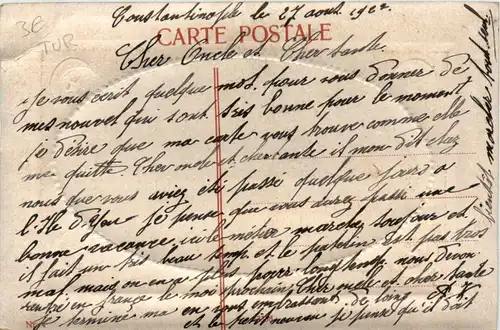 3E
TUR
Constantinople le 27 aout 1922
CARTE POSTALE
Cher Oncle et Cher tante
je vous ecrit quelque mot pour vous donner de
mes nouvel qui sont tres bonne pour le moment
je désire que ma carte vous trouve comme elle
me quitte Cher oncle et cher tante il mon dit chez
nous que vous aviez été passé quelque jours a
l'Ile d'Yeu je pense que vous aurez passi une
bonne vacance ici le métier marche toujour et
il fait un tres beau temp et le est pas tros
mal mais on en a plus pour longtemp nous devon
rentré en france le moi prochain Cher oncle et cher tante
je termine ma en vous embrassent de loing
et le petit neveu je pense qu'il doit